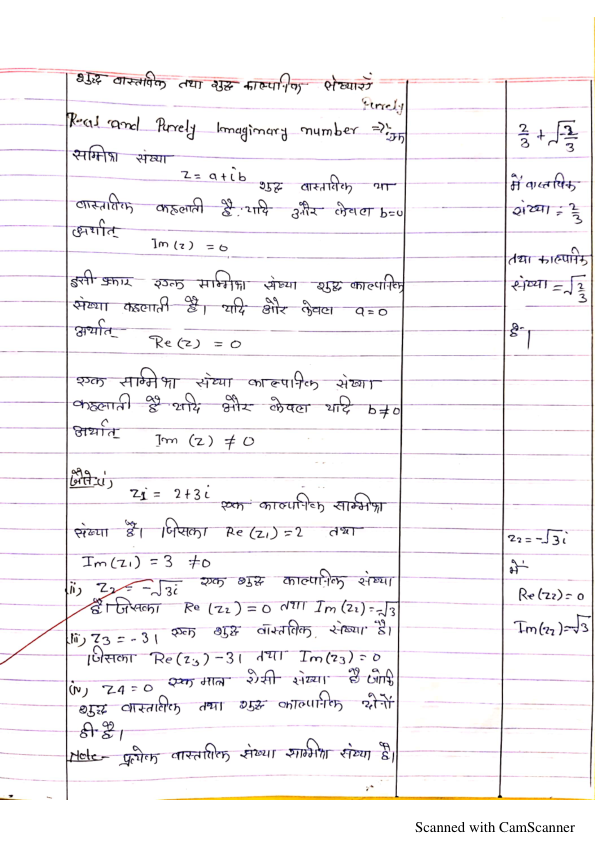 शुद्ध वास्तविक तथा शुद्ध काल्पनिक संख्याएँ
Purely
Real and Purely Imaginary number ⇒ एक
सम्मिश्र संख्या
z = a+ib शुद्ध वास्तविक या
वास्तविक कहलाती है यदि और केवल b=0
अर्थात्
Im (z) = 0
इसी प्रकार एक सम्मिश्र संख्या शुद्ध काल्पनिक
संख्या कहलाती है। यदि और केवल a=0
अर्थात्
Re(z) = 0
एक सम्मिश्र संख्या काल्पनिक संख्या
कहलाती है यदि और केवल यदि b≠0
अर्थात्
Im (z) ≠ 0
जैसे:i)
z1 = 2+3i एक काल्पनिक सम्मिश्र
संख्या है। जिसका Re(z1)=2 तथा
Im(z1) = 3 ≠0
ii) z2 = -√3i एक शुद्ध काल्पनिक संख्या
है। जिसका Re (z2) = 0 तथा Im(z2)=-√3
iii) z3 = -31 एक शुद्ध वास्तविक संख्या है।
जिसका Re(z3)-31 तथा Im(z3) = 0
(iv) z4=0 एक मात्र ऐसी संख्या है जोकि
शुद्ध वास्तविक तथा शुद्ध काल्पनिक दोनों
ही है।
Note- प्रत्येक वास्तविक संख्या सम्मिश्र संख्या है।
2/3 + √2/3
में वास्तविक
संख्या = 2/3
तथा काल्पनिक
संख्या = √2/3
है।
z2=-√3i
में
Re(z2)=0
Im(z2)=√3
Scanned with CamScanner